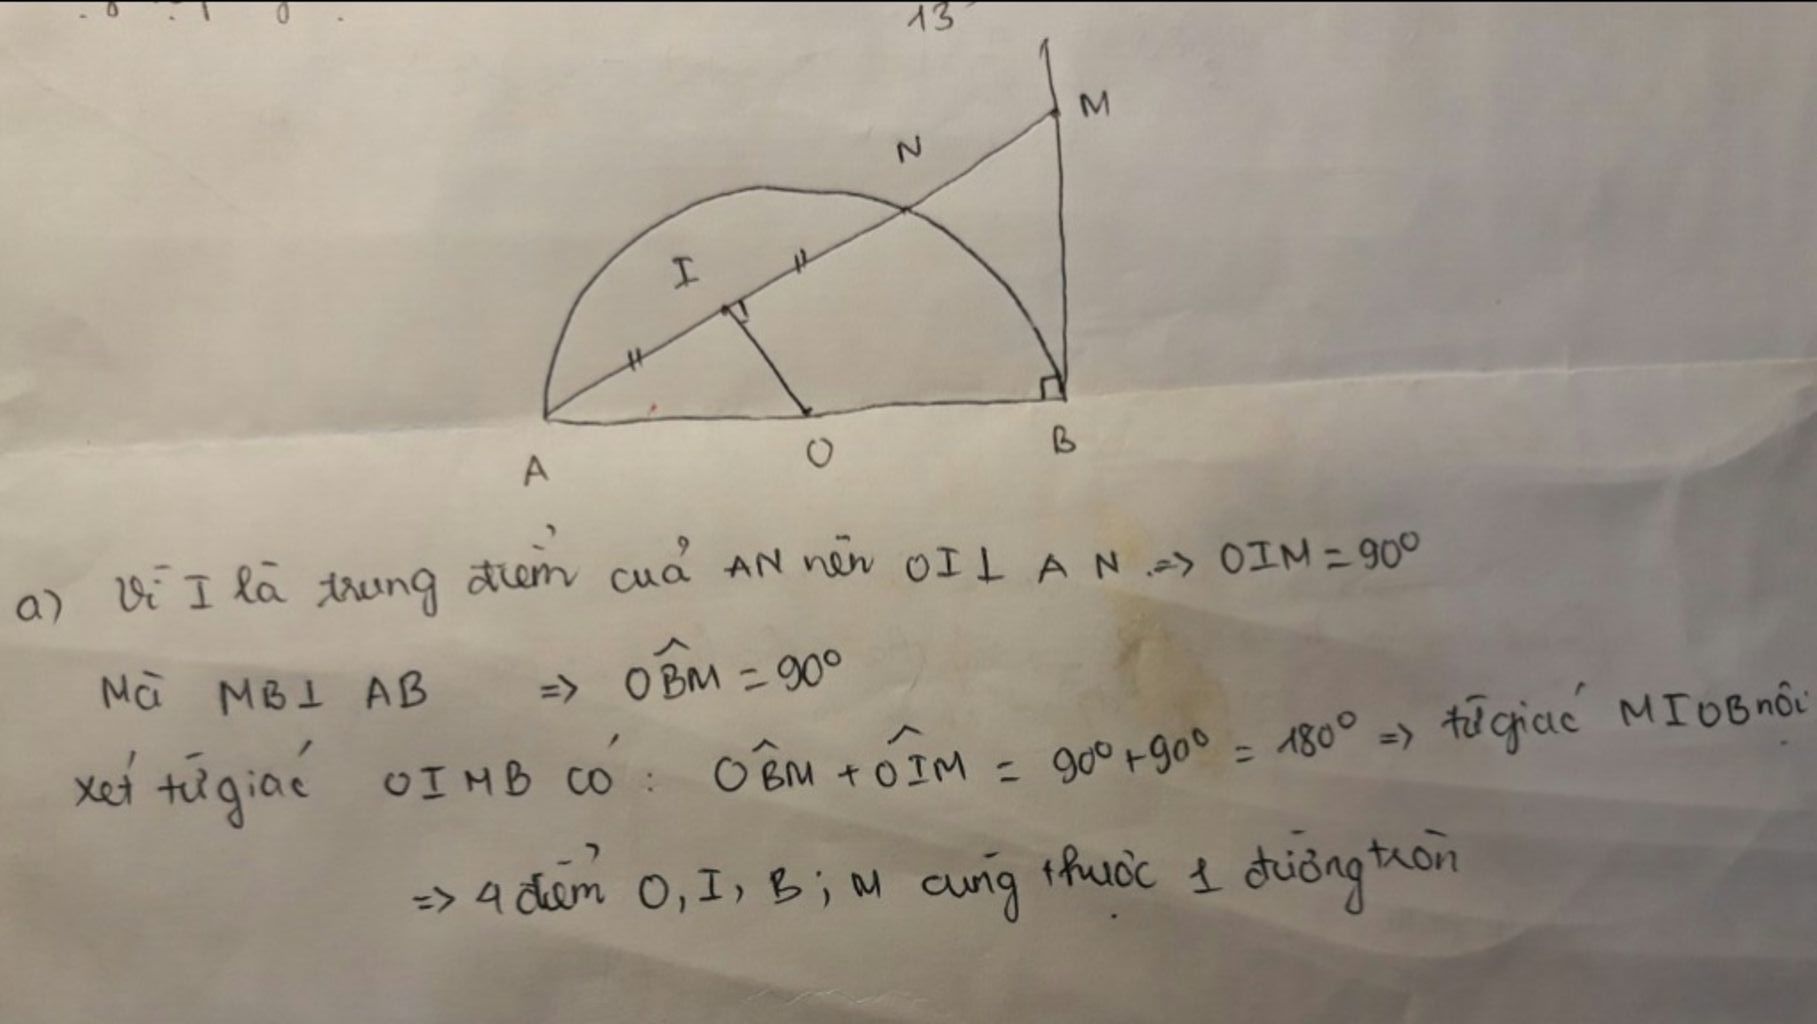 13
M
N
I
A
O
B
a) Vì I là trung điểm của AN nên OI ⊥ AN => OIM = 90°
Mà MB ⊥ AB => OB̂M = 90°
xét tứ giác OIMB có: OB̂M + OÎM = 90° + 90° = 180° => tứ giác MIOB nội
=> 4 điểm O, I, B; M cùng thuộc 1 đường tròn